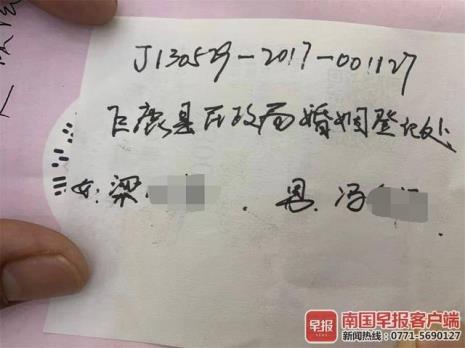 J130529-2017-001127
巨鹿县民政局婚姻登记处
女:梁 . 男.冯
早报 南国早报客户端
新闻热线:0771-5690127